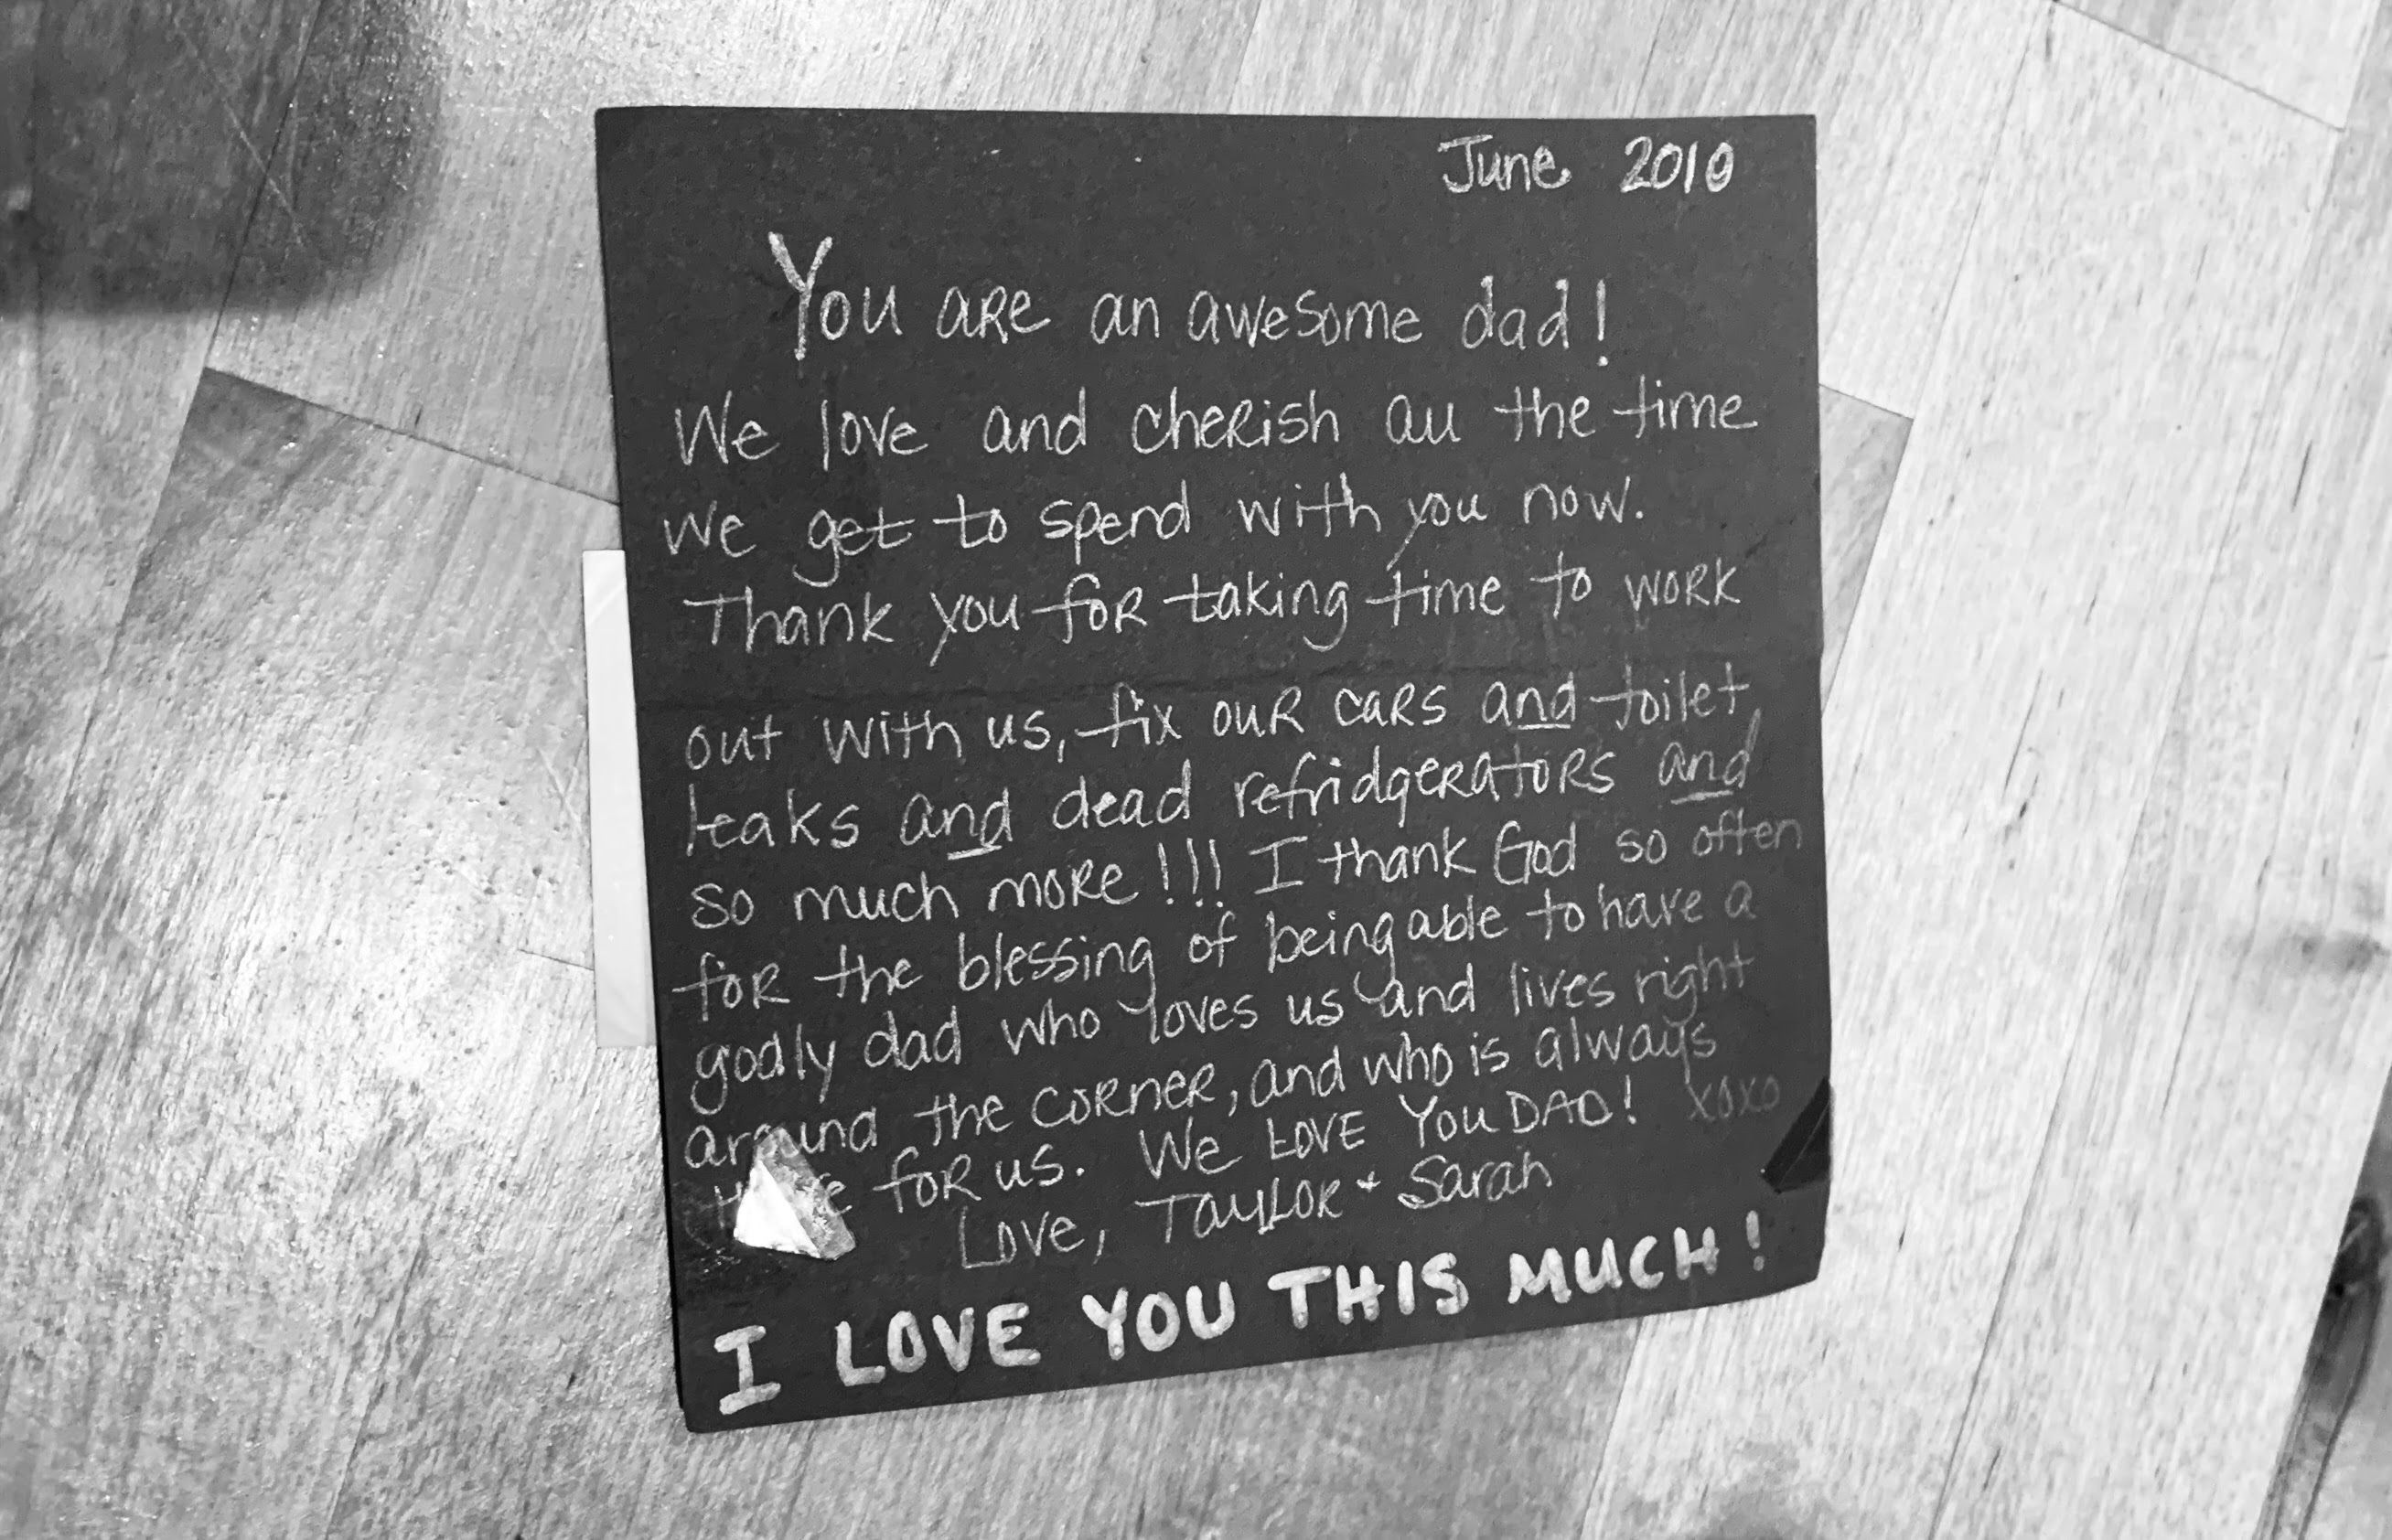 June 2010
You are an awesome dad!
We love and cherish all the time
we get to spend with you now.
Thank you for taking time to work
out with us, fix our cars and toilet
leaks and dead refridgerators and
so much more!!! I thank God so often
for the blessing of being able to have a
godly dad who loves us and lives right
around the corner, and who is always
for us. We LOVE You DAD! xoxo
Love, TAYLOR + Sarah
I LOVE YOU THIS MUCH!